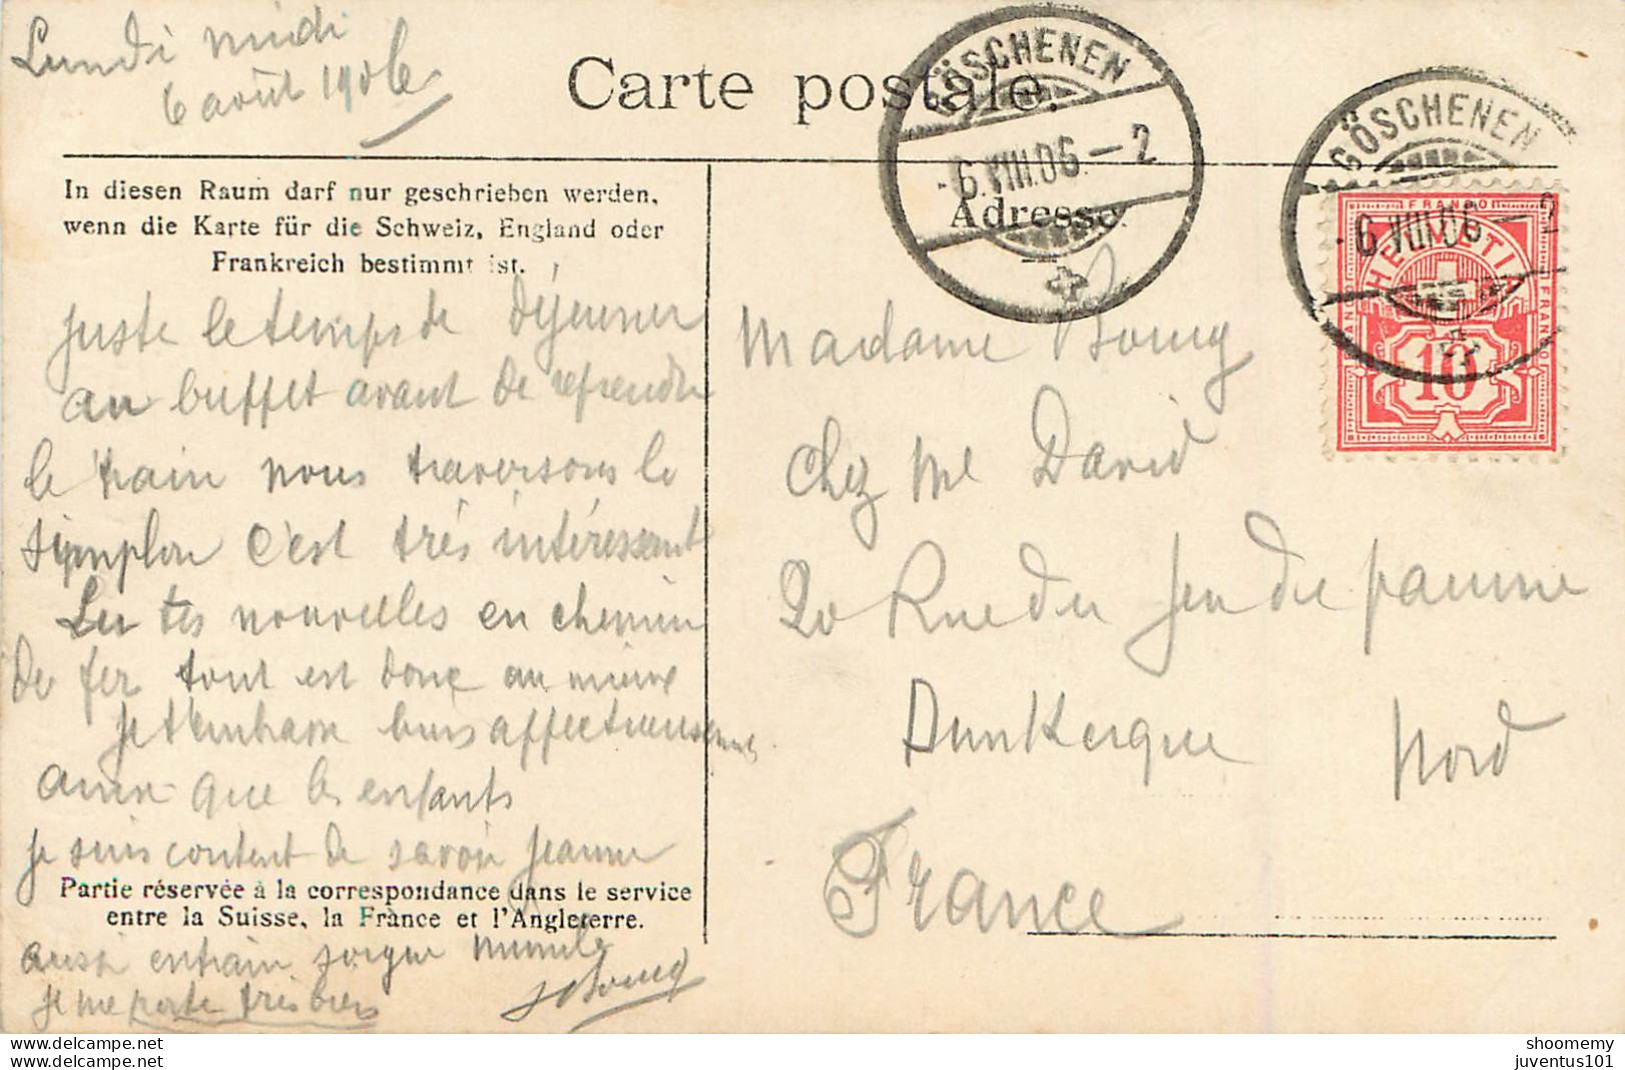 Lundi midi
6 août 1906
Carte postale.
GÖSCHENEN
-6.VIII.06.-2
GÖSCHENEN
-6.VIII.06-2
FRANCO
HELVETIA
FRANCO
FRANCO
10
In diesen Raum darf nur geschrieben werden,
wenn die Karte für die Schweiz, England oder
Frankreich bestimmt ist.
Adresse
juste le temps de déjeuner
au buffet avant de reprendre
le train nous traversons le
Simplon c'est très intéressant
Lu tes nouvelles en chemin
de fer tout est donc au mieux
Je t'embrasse bien affectueusement
ainsi que les enfants
je suis content de savoir Jeanne
Partie réservée à la correspondance dans le service
entre la Suisse, la France et l'Angleterre.
aussi entrain soigne
je me porte très bien
Madame Bourg
chez Me David
20 Rue du Jeu de paume
Dunkerque Nord
France
delcampe.net
delcampe.net
shoomemy
juventus101